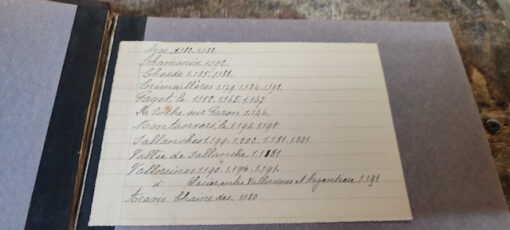 Chamonix 1.192.
Chedde 1.185. 1.188.
Crémaillères 1.179. 1.184. 1.192
Fayet, le 1.152. 1.165. 1.167
La Roche sur Foron 1.146.
Montanvers, le 1.194. 1.195
Sallanches 1.199. 1.202. 1.181. 1.201.
Vallée de Sallanche 1.181
Vallorcines 1.190. 1.196. 1.191.
entre Vallorcines et Argentière 1.192
Aravis Chaine des. 1.180